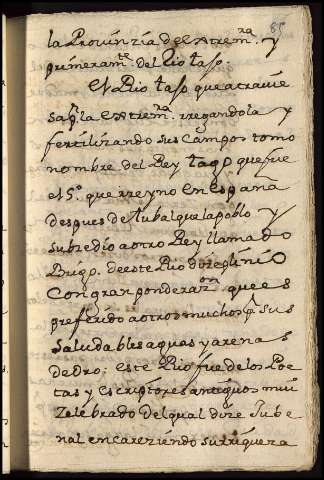 85
la Provinzia de Extrem.ra y
primeram.te del Rio taso.
El Rio taso que atravie
sa q.l la Extrem.ra rregandola y
fertilizando sus Campos tomo
nombre del Rey tago que fue
el 5.º que rreyno en España
despues de tubal que la poblo y
subzedio a otro Rey llamado
Brigo. de este Rio dize plinio
Con gran ponderaz.on que es
preferido a otros muchos q. sus
saludables aguas y arenas
de Oro: este Rio fue de los Poe
tas y escriptores antiguos mui
Zelebrado del qual dize Jube
nal encareziendo su rriqueza